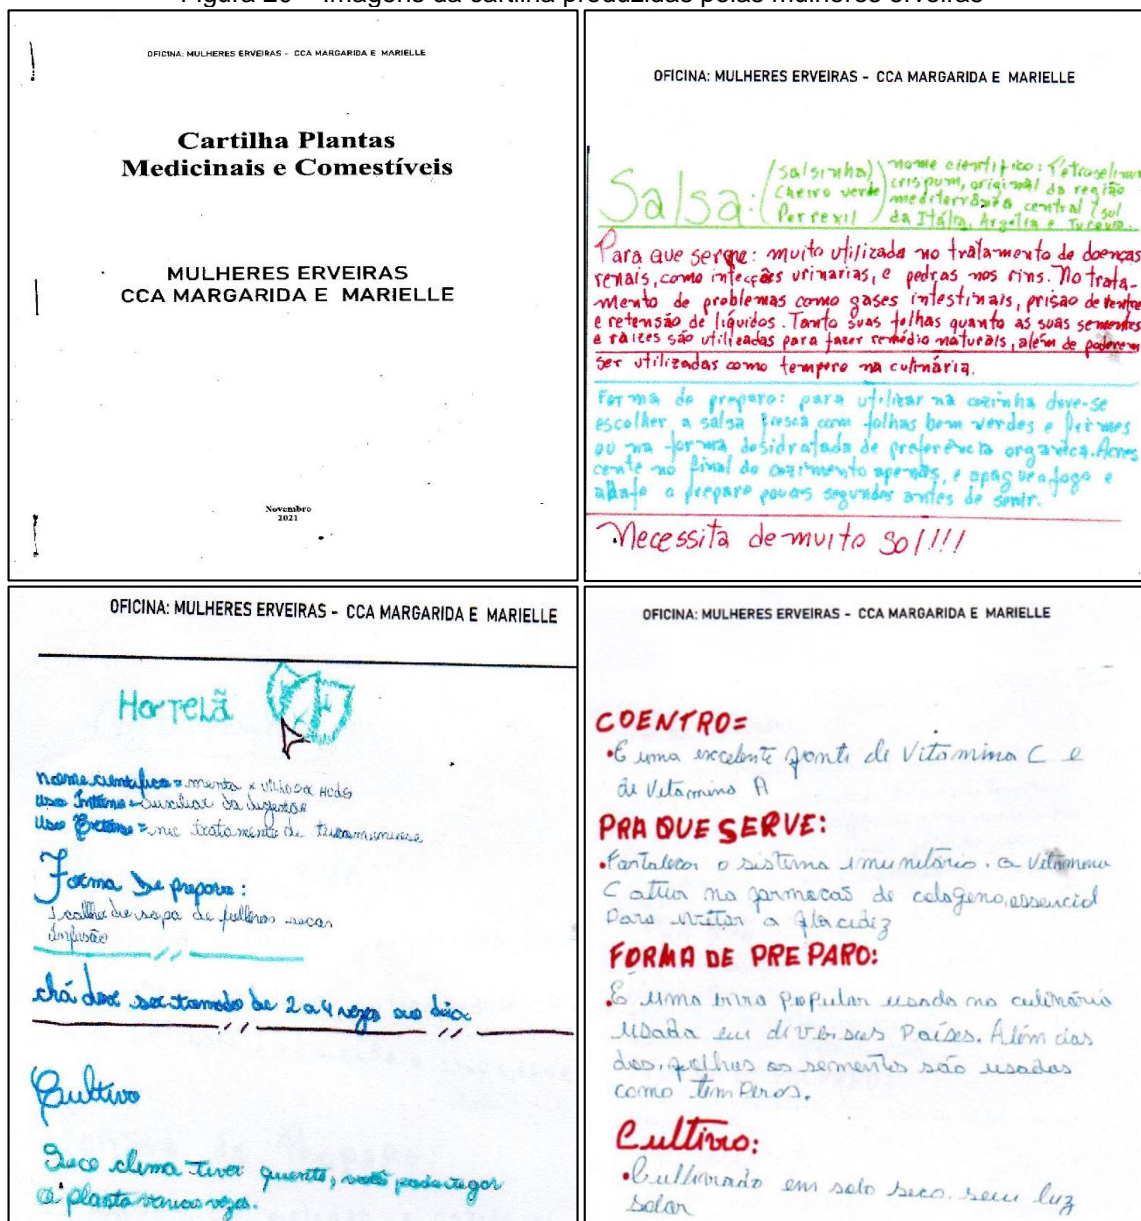 Figura 20 – Imagens da cartilha produzidas pelas mulheres erveiras
OFICINA: MULHERES ERVEIRAS - CCA MARGARIDA E MARIELLE
Cartilha Plantas
Medicinais e Comestíveis
MULHERES ERVEIRAS
CCA MARGARIDA E MARIELLE
Novembro
2021
OFICINA: MULHERES ERVEIRAS - CCA MARGARIDA E MARIELLE
Salsa: (Salsinha) nome cientifico: Petroselinum
Cheiro verde crispum, original da região
Perrexil mediterrânea central (sul
da Itália, Argélia e
Para que serve: muito utilizada no tratamento de doenças
renais, como infecções urinarias, e pedras nos rins. No trata-
mento de problemas como gases intestinais, prisão de ventre
e retensão de líquidos. Tanto suas folhas quanto as suas sementes
e raizes são utilizadas para fazer remédio naturais, além de poderem
ser utilizadas como tempero na culinária.
Forma de preparo: para utilizar na cozinha deve-se
escolher a salsa fresca com folhas bem verdes e firmes
ou na forma desidratada de preferência organica. Acres
cente no final do cozimento apenas, e apague o fogo e
abafe o preparo poucos segundos antes de servir.
Necessita de muito sol!!!
OFICINA: MULHERES ERVEIRAS - CCA MARGARIDA E MARIELLE
Hortelã
nome cientifico = menta x villosa Huds
Uso Interno = auxiliar da digestão
Uso Externo = no tratamento de
Forma De preparo:
1 colher de sopa de folhas secas
infusão
chá deve ser tomado de 2 a 4 vezes ao dia
Cultivo
clima tiver quente, você pode regar
a planta varias vezes.
OFICINA: MULHERES ERVEIRAS - CCA MARGARIDA E MARIELLE
COENTRO=
•É uma excelente fonte de Vitamina C e
de Vitamina A
PRA QUE SERVE:
•Fortalecer o sistema imunitário. a Vitamina
C atua na formacas de colageno, essencial
Para evitar a flacidez
FORMA DE PREPARO:
É uma erva popular usada na culinário
usada em diversas Países. Além das
das, folhas as sementes são usadas
como temPeros.
Cultivo:
•Cultivado em solo seco. seeu luz
solar